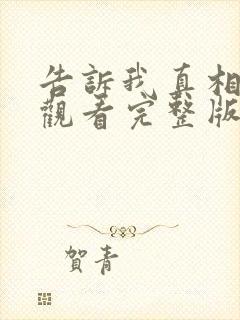 告訴我真相
觀看完整版
賀青